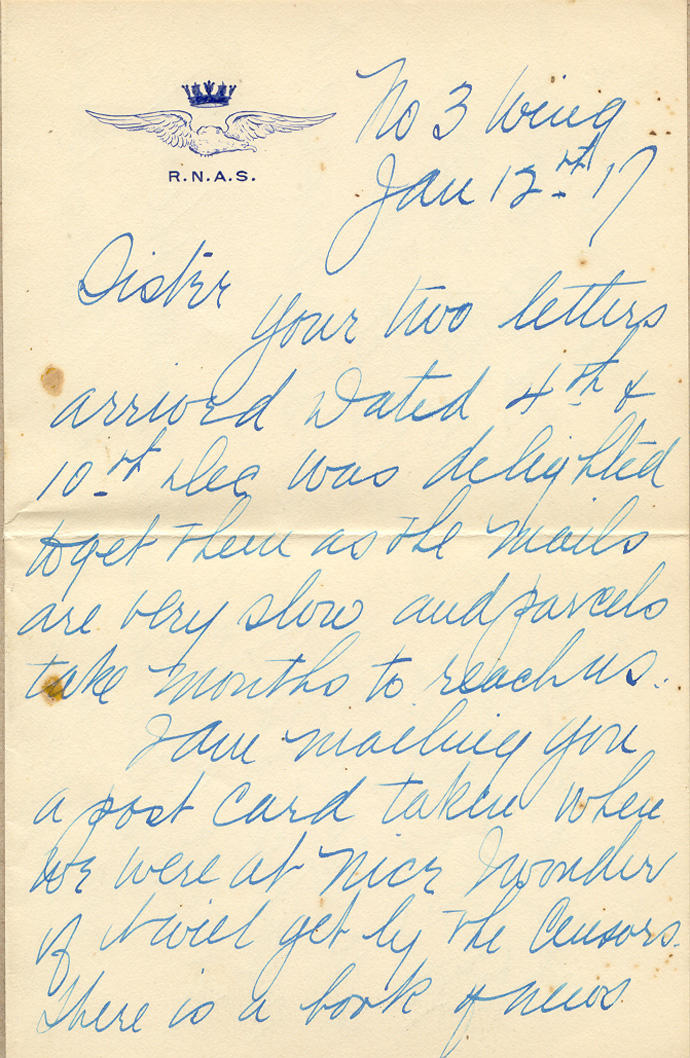 R.N.A.S.
No 3 Wing
Jan 12th 17
Sister
Your two letters
arrived Dated 4th &
10th Dec was delighted
to get them as the mails
are very slow and parcels
take months to reach us.
I am mailing you
a post card taken when
we were at Nice I wonder
if it will get by the Censors.
There is a book of news